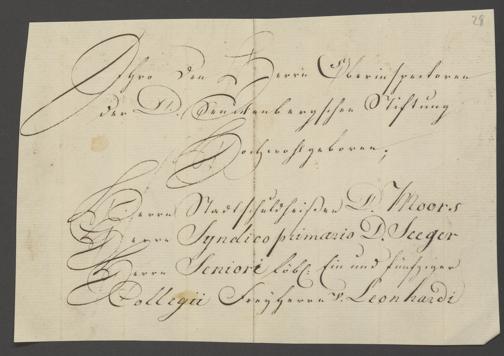 28
Ihro den Herrn Oberinspectoren
der D. Senckenbergschen Stiftung
Hochwohlgeboren,
Herrn Stadtschuldheißen D. Moors
Herrn Syndico primario D. Seeger
Herrn Seniori löbl. Ein und fünfziger
Collegii Freyherrn v. Leonhardi